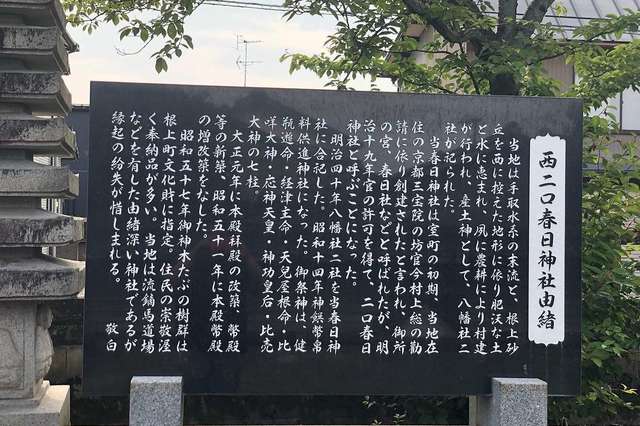 西二口春日神社由緒
当地は手取水系の末流と、根上砂
丘を西に控えた地形に依り肥沃な土
と水に恵まれ、夙に農耕により村建
が行われ、産土神として、八幡社二
社が祀られた。
当春日神社は室町の初期、当地在
住の京都三宝院の坊官今村上総の勧
請に依り創建されたと言われ、御所
の宮、春日社などと呼ばれたが、明
治十九年官の許可を得て、二口春日
神社と呼ぶことになった。
明治四十年八幡社二社を当春日神
社に合祀した。昭和十四年神饌幣帛
料供進神社になった。御祭神は、健
甕槌命・経津主命・天児屋根命・比
咩大神・応神天皇・神功皇后・比売
大神の七柱。
大正元年に本殿拝殿の改築、幣殿
等の新築、昭和五十一年に本殿幣殿
の増改築をなした。
昭和五十七年御神木たぶの樹群は
根上町文化財に指定。住民の崇敬渥
く奉納品が多い。当地は流鏑馬道場
などを有した由緒深い神社であるが
縁起の紛失が惜しまれる。
敬白